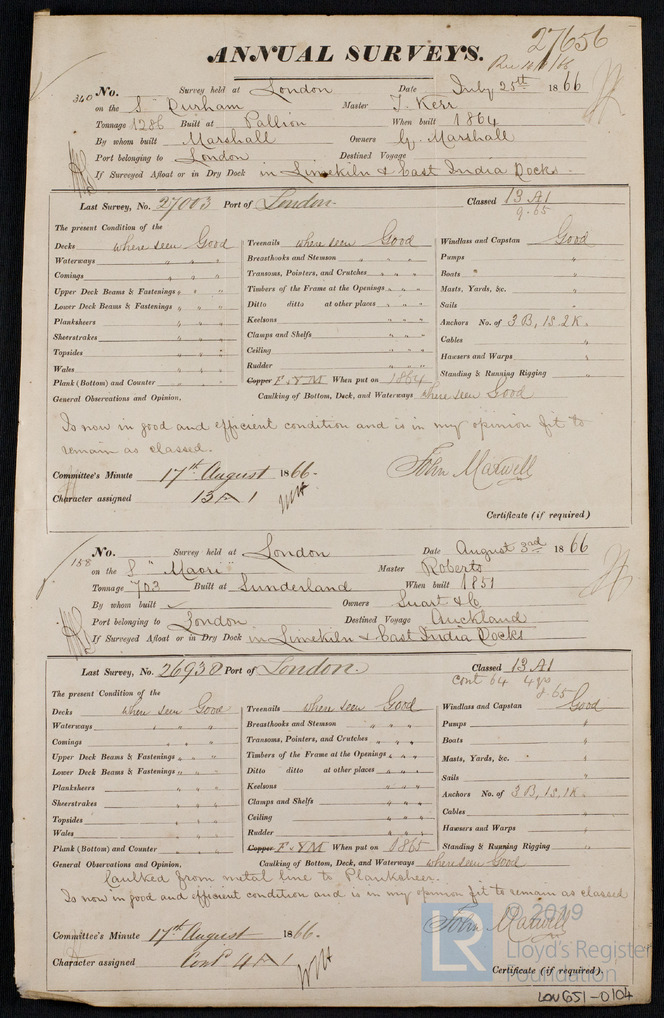 27656
ANNUAL SURVEYS.
340 No. Survey held at London Date July 25th 1866
on the S Durham Master T. Kerr
Tonnage 1286 Built at Pallion When built 1864
By whom built Marshall Owners G. Marshall
Port belonging to London Destined Voyage
If Surveyed Afloat or in Dry Dock in Limekiln & East India Docks.
Last Survey, No. 27003 Port of London. Classed 13 A1
9.65
The present Condition of the
Decks where seen Good
Waterways " "
Comings " "
Upper Deck Beams & Fastenings " " "
Lower Deck Beams & Fastenings " " "
Planksheers " " "
Sheerstrakes " " "
Topsides " " "
Wales " " "
Plank (Bottom) and Counter " "
Treenails where seen Good
Breasthooks and Stemson " " "
Transoms, Pointers, and Crutches " " "
Timbers of the Frame at the Openings " " "
Ditto ditto at other places " " "
Keelsons " " "
Clamps and Shelfs " " "
Ceiling " " "
Rudder " " "
Copper F.&M. When put on 1864
Windlass and Capstan Good
Pumps "
Boats " "
Masts, Yards, &c. "
Sails "
Anchors No. of 3 B, 1S. 2K.
Cables "
Hawsers and Warps "
Standing & Running Rigging "
General Observations and Opinion, Caulking of Bottom, Deck, and Waterways where seen Good
Is now in good and efficient condition and is in my opinion fit to
remain as classed.
Committee's Minute 17th August 1866. John Maxwell
Character assigned 13 A 1
Certificate (if required)
158 No. Survey held at London Date August 3rd 1866
on the S "Maori" Master Roberts
Tonnage 703 Built at Sunderland When built 1851
By whom built Owners & Co
Port belonging to London Destined Voyage Auckland
If Surveyed Afloat or in Dry Dock in Limekiln & East India Docks
Last Survey, No. 26930 Port of London. Classed 13 A1
Cont 64 4 yrs
8.65
The present Condition of the
Decks where seen Good
Waterways " " "
Comings " "
Upper Deck Beams & Fastenings " " "
Lower Deck Beams & Fastenings " " "
Planksheers " " "
Sheerstrakes " " "
Topsides " " "
Wales " " "
Plank (Bottom) and Counter " " "
Treenails where seen Good
Breasthooks and Stemson " " "
Transoms, Pointers, and Crutches " " "
Timbers of the Frame at the Openings " " "
Ditto ditto at other places " " "
Keelsons " " "
Clamps and Shelfs " " "
Ceiling " " "
Rudder " " "
Copper F.&M When put on 1865
Windlass and Capstan Good
Pumps "
Boats "
Masts, Yards, &c. "
Sails "
Anchors No. of 3 B, 1S. 1K.
Cables "
Hawsers and Warps "
Standing & Running Rigging "
General Observations and Opinion, Caulking of Bottom, Deck, and Waterways where seen Good
Caulked from metal line to Planksheer.
Is now in good and efficient condition and is in my opinion fit to remain as classed
Committee's Minute 17th August 1866. John Maxwell
Character assigned Contd 4 A 1
Certificate (if required).
© 2019
LR Lloyd's Register
Foundation
LON651-0104